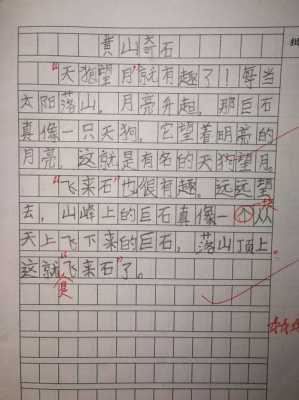 黄山奇石
“天狼望月”就有趣了！每当
太阳落山，月亮升起。那巨石
真像一只天狗，它望着明亮的
月亮。这就是有名的天狗望月。
“飞来石”也很有趣。远远望
去，山峰上的巨石真像一个从
天上飞下来的巨石，落山顶上。
这就是“飞来石”了。